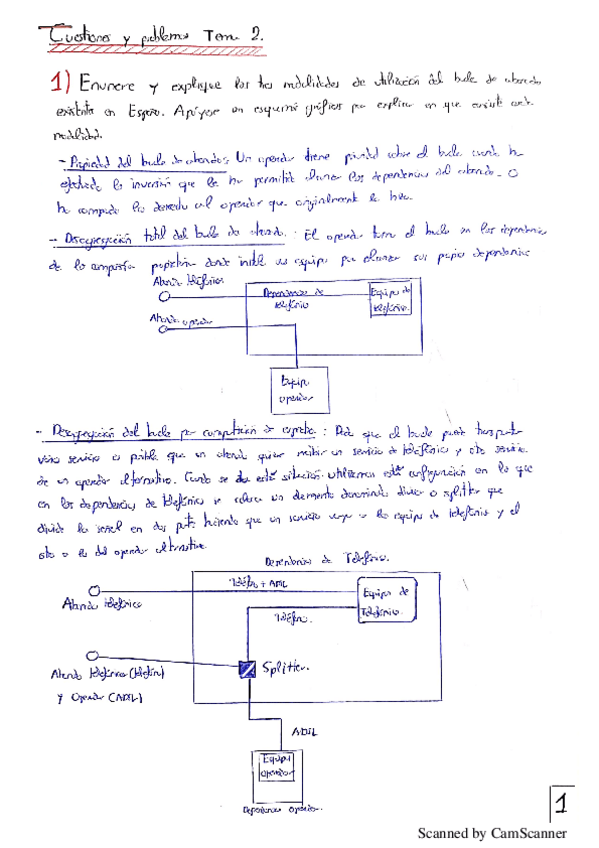 Cuestiones y problemas Tema 2.
1) Enumere y explique las tres modalidades de utilización del bucle de abonado
existente en España. Apóyese en esquemas gráficos para explicar en que consiste cada
modalidad.
- Propiedad del bucle de abonado: Un operador tiene propiedad sobre el bucle cuando ha
efectuado la inversión que le ha permitido alcanzar las dependencias del abonado. O
ha comprado los derechos al operador que originalmente la hizo.
- Desagregación total del bucle de abonado. : El operador toma el bucle en las dependencias
de la compañía propietaria donde instala sus equipos para alcanzar sus propias dependencias
Abonado telefónica
Dependencias de
telefónica
Equipo de
telefónica.
Abonado operador
Equipo
operador
- Desagregación del bucle por compartición de espectro : Dado que el bucle puede transportar
varios servicios es posible que un abonado quiera recibir un servicio de telefónica y otro servicio
de un operador alternativo. Cuando se da esta situación utilizamos esta configuración en la que
en las dependencias de telefónica se coloca un elemento denominado divisor o splitter que
divide la señal en dos partes haciendo que un servicio vaya a los equipos de telefónica y el
otro a los del operador alternativo.
Dependencias de Telefónica.
Teléfono + ADSL
Abonado telefónica
Equipo de
Telefónica.
Teléfono.
Abonado telefónica (telefonía)
y Operador (ADSL)
Splitter.
ADSL
Equipo
operador
Dependencias operador.
1
Scanned by CamScanner